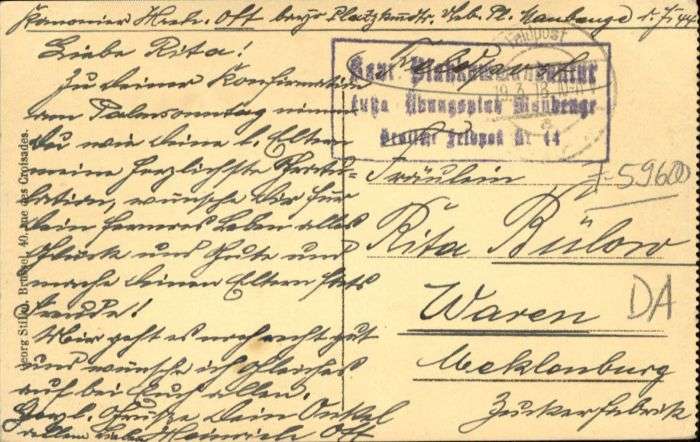 Kanonier Heinr. Ott bayr. Platzkmdtr. Ueb. Pl. Maubenge d. F. 44
Liebe Rita!
Zu Deiner Konfirmation
am Palmsonntag nimm
Du wie Deine l. Eltern
meine herzlichste Gratu-
lation, wünsche Dir für
Dein ferneres Leben alles
Glück und Gute und
mache Deinen Eltern stets
Freude!
Mir geht es noch recht gut
und wünsche ich gleiches
auf bei Euch allen.
Herzl. Grüsse Dein Onkel
allen Heinrich Ott
Georg Stilke, Brüssel, 40, rue des Croisades.
Feldpost
Feldpost
19.3.18.
Kgl. Platzkommandantur
Übungsplatz Maubenge
Deutsche Feldpost Nr 44
F 59600
DA
Fräulein
Rita Bülow
Waren
Mecklenburg
Zuckerfabrik